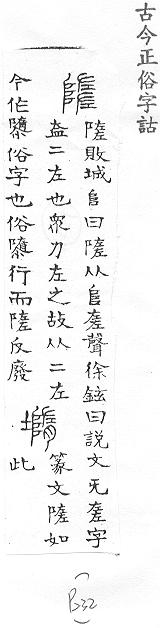 古今正俗字詁
陸敗城𨸏曰陸从𨸏㚅聲徐鉉曰說文无㚅字
葢二左也衆力左之故从二左 篆文陸如
今作隳俗字也俗隳行而陸反廢 此
(B32)